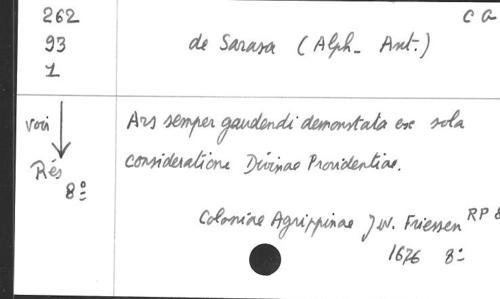 262
93
1
c a
de Sarasa (Alph. Ant.)
voir
Rés
8º
Ars semper gaudendi demonstata ex sola
consideratione Divinae Providentiae.
Coloniae Agrippinae J.W. Friessen RP 8
1676 8º